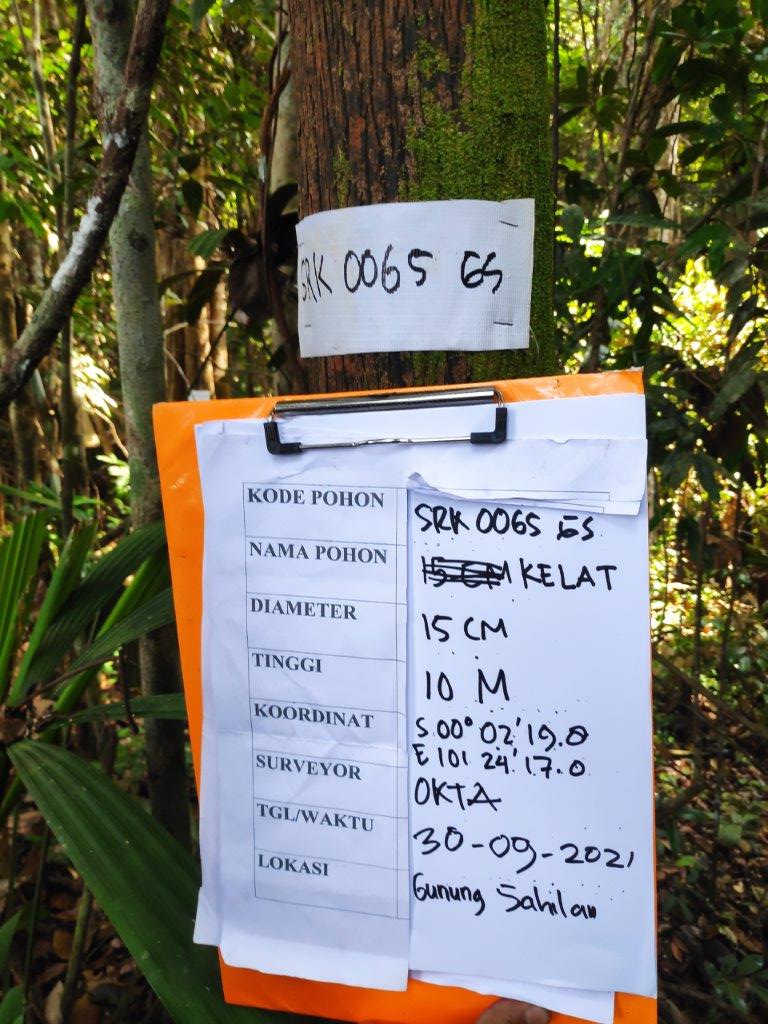 SRK 0065 ES
KODE POHON SRK 0065 ES
NAMA POHON KELAT
DIAMETER 15 CM
TINGGI 10 M
KOORDINAT S.00° 02' 19.0
E 101 24' 17.0
SURVEYOR OKTA
TGL/WAKTU 30-09-2021
LOKASI Gunung Sahilan